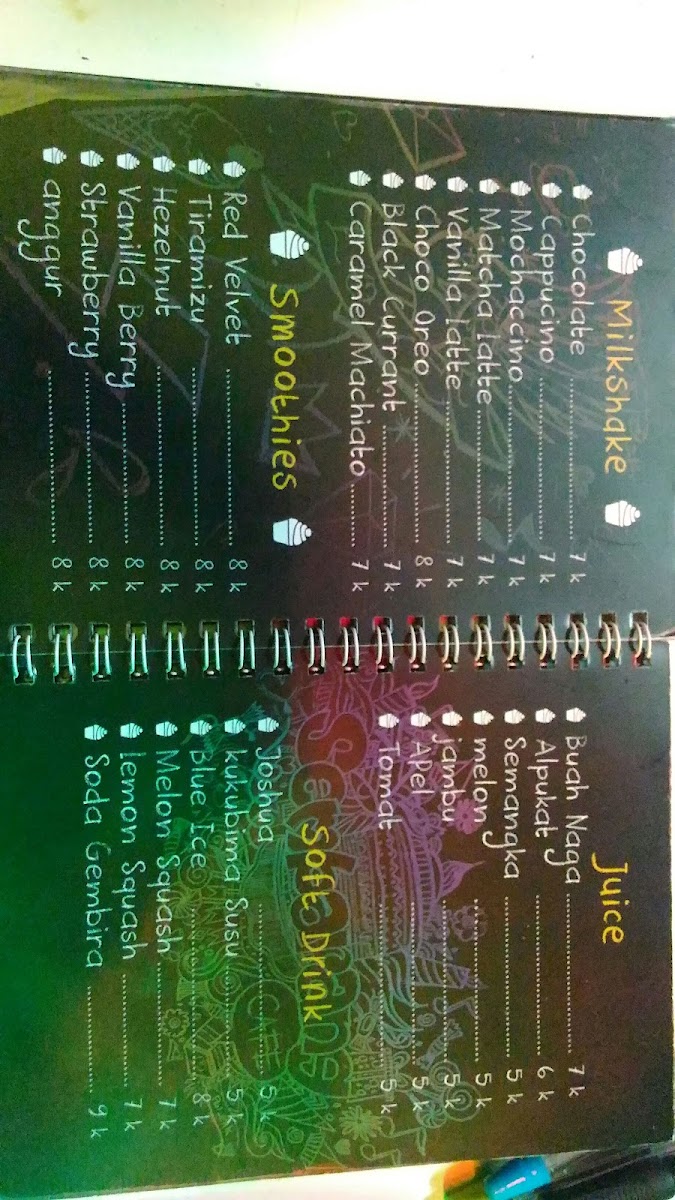 Milkshake
Chocolate .......... 7 k
Cappucino .......... 7 k
Mochaccino .......... 7 k
Matcha latte .......... 7 k
Vanilla latte .......... 7 k
Choco Oreo .......... 8 k
Black Currant .......... 7 k
Caramel Machiato .......... 7 k
Smoothies
Red Velvet .......... 8 k
Tiramizu .......... 8 k
Hezelnut .......... 8 k
Vanilla Berry .......... 8 k
Strawberry .......... 8 k
anggur .......... 8 k
Juice
Buah Naga .......... 7 k
Alpukat .......... 6 k
Semangka .......... 5 k
melon .......... 5 k
jambu .......... 5 k
Apel .......... 5 k
Tomat .......... 5 k
Soft Drink
Joshua .......... 5 k
kukubima Susu .......... 5 k
Blue Ice .......... 8 k
Melon Squash .......... 7 k
lemon Squash .......... 7 k
Soda Gembira .......... 9 k
CAFE